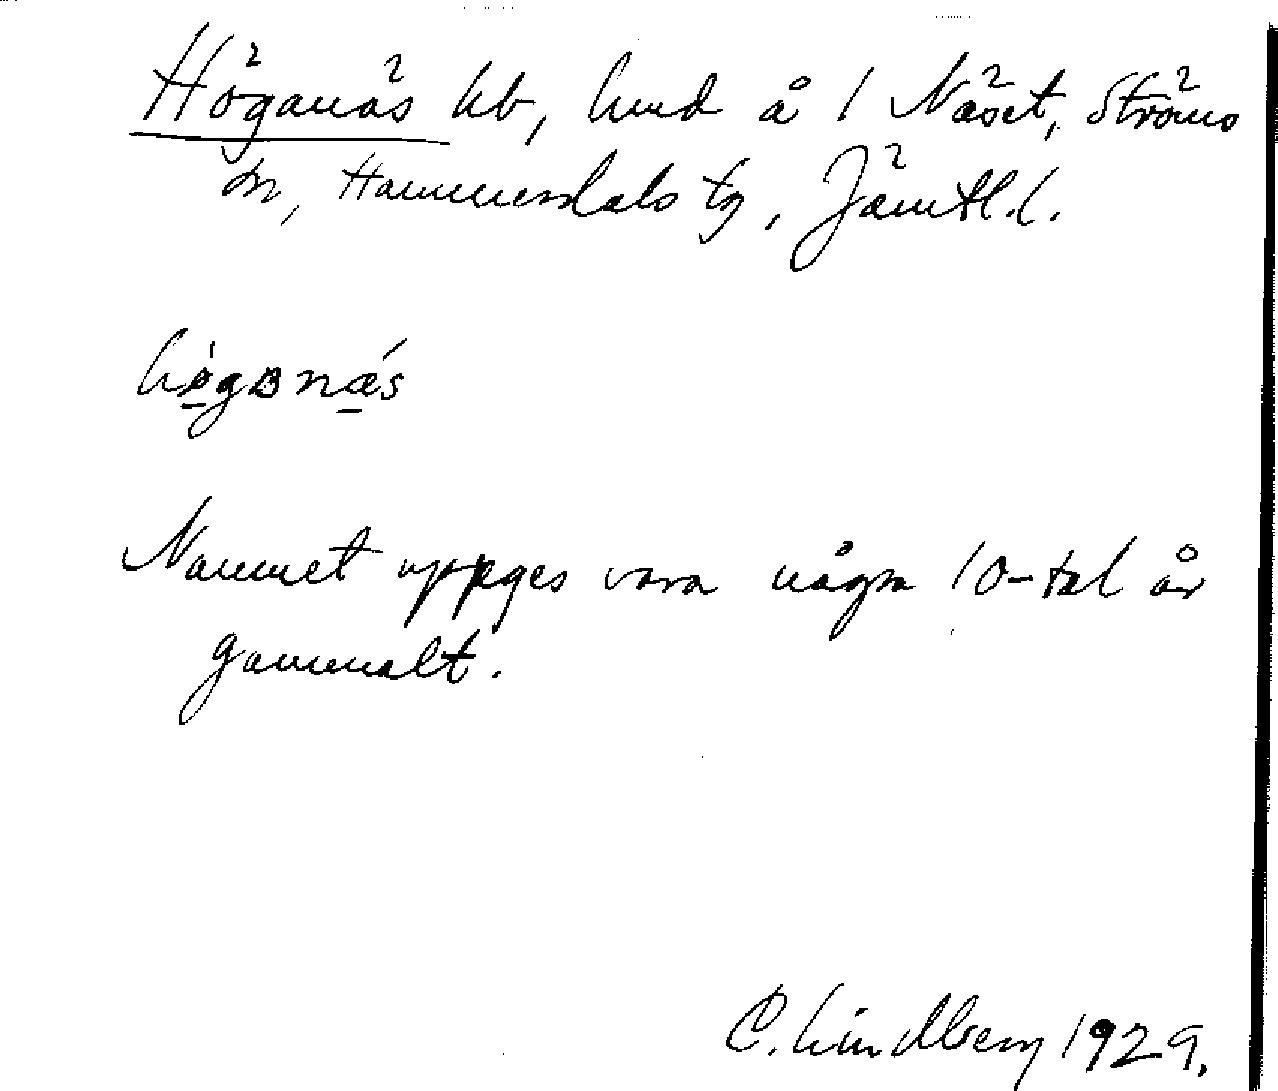 Höganäs lb, hmd å 1 Näset, Ströms
sn, Hammerdals tg, Jämtl. l.
Namnet uppges vara några 10-tal år
gammalt.
C. Lindberg 1929.